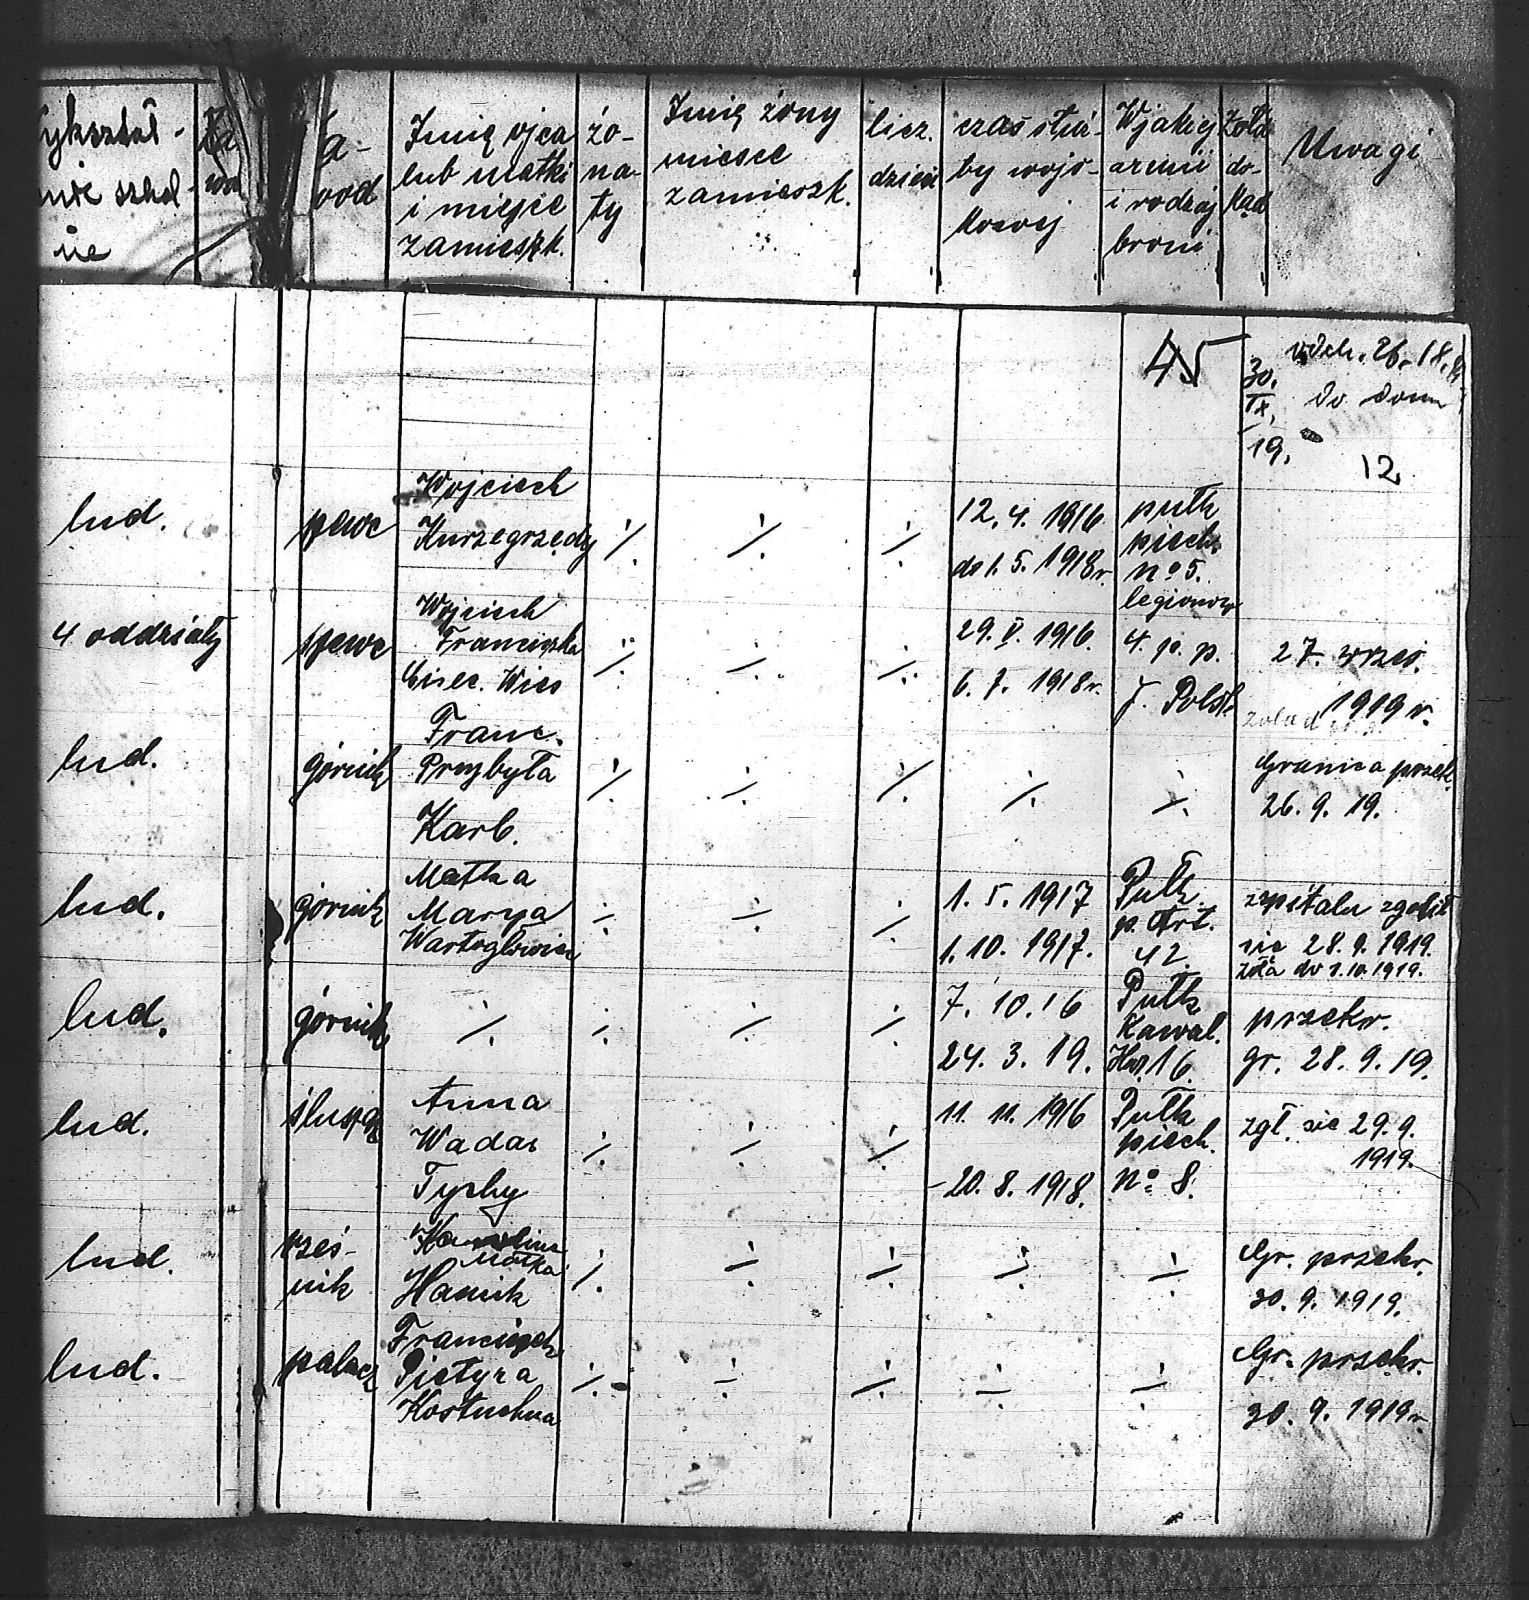 szkol
Za-
wód
Imię ojca
lub matki
i miejsc
zamieszk.
żo-
na-
ty
Imię żony
miesce
zamieszk.
licz.
dzieci
czas służ-
by wojs-
kowej
W jakiej
armii
i rodzaj
broni
Żołd
do-
kąd
Uwagi
45
30.
IX.
19.
odch. 26.
do domu
12
lud.
Wojciech
Kurzegrzędy
·/.
·/.
·/.
12. 4. 1916
do 1. 5. 1918r.
pułk
piech.
nº 5.
legionów
4 oddziały
Wojciech
Franciszka
·/.
·/.
·/.
29. V. 1916.
6. 7. 1918r.
4. p. p.
27. wrześ.
1919 r.
lud.
górnik
Franc.
Przybyła
Karb.
·/.
·/.
·/.
·/.
·/.
Granica przek.
26. 9. 19.
lud.
górnik
Matka
Marya
·/.
·/.
·/.
1. 5. 1917
1. 10. 1917.
Pułk
p. Art.
42.
szpitalu zgłosił
się 28. 9. 1919.
żołd do 1.10.1919.
lud.
górnik
·/.
·/.
·/.
·/.
7. 10. 16
24. 3. 19.
Pułk
Kawal.
16
przekr.
gr. 28. 9. 19.
lud.
Anna
Wadas
Tychy
·/.
·/.
·/.
11. 11. 1916
-20. 8. 1918.
Pułk
piech.
nº 8.
zgł. się 29. 9.
1919.
lud.
rześ-
nik
Karolina
Matka
Hanik
·/.
·/.
·/.
·/.
·/.
Gr. przekr.
30. 9. 1919.
lud.
palacz
Franciszek
Pietyra
Kostuchna
·/.
·/.
·/.
·/.
·/.
Gr. przekr.
30. 9. 1919r.